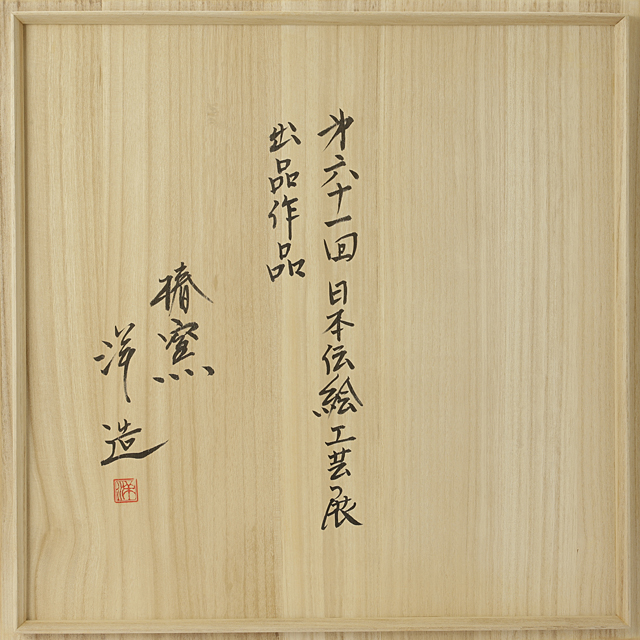 第六十一回 日本伝絵工芸展
出品作品
椿窯
洋造